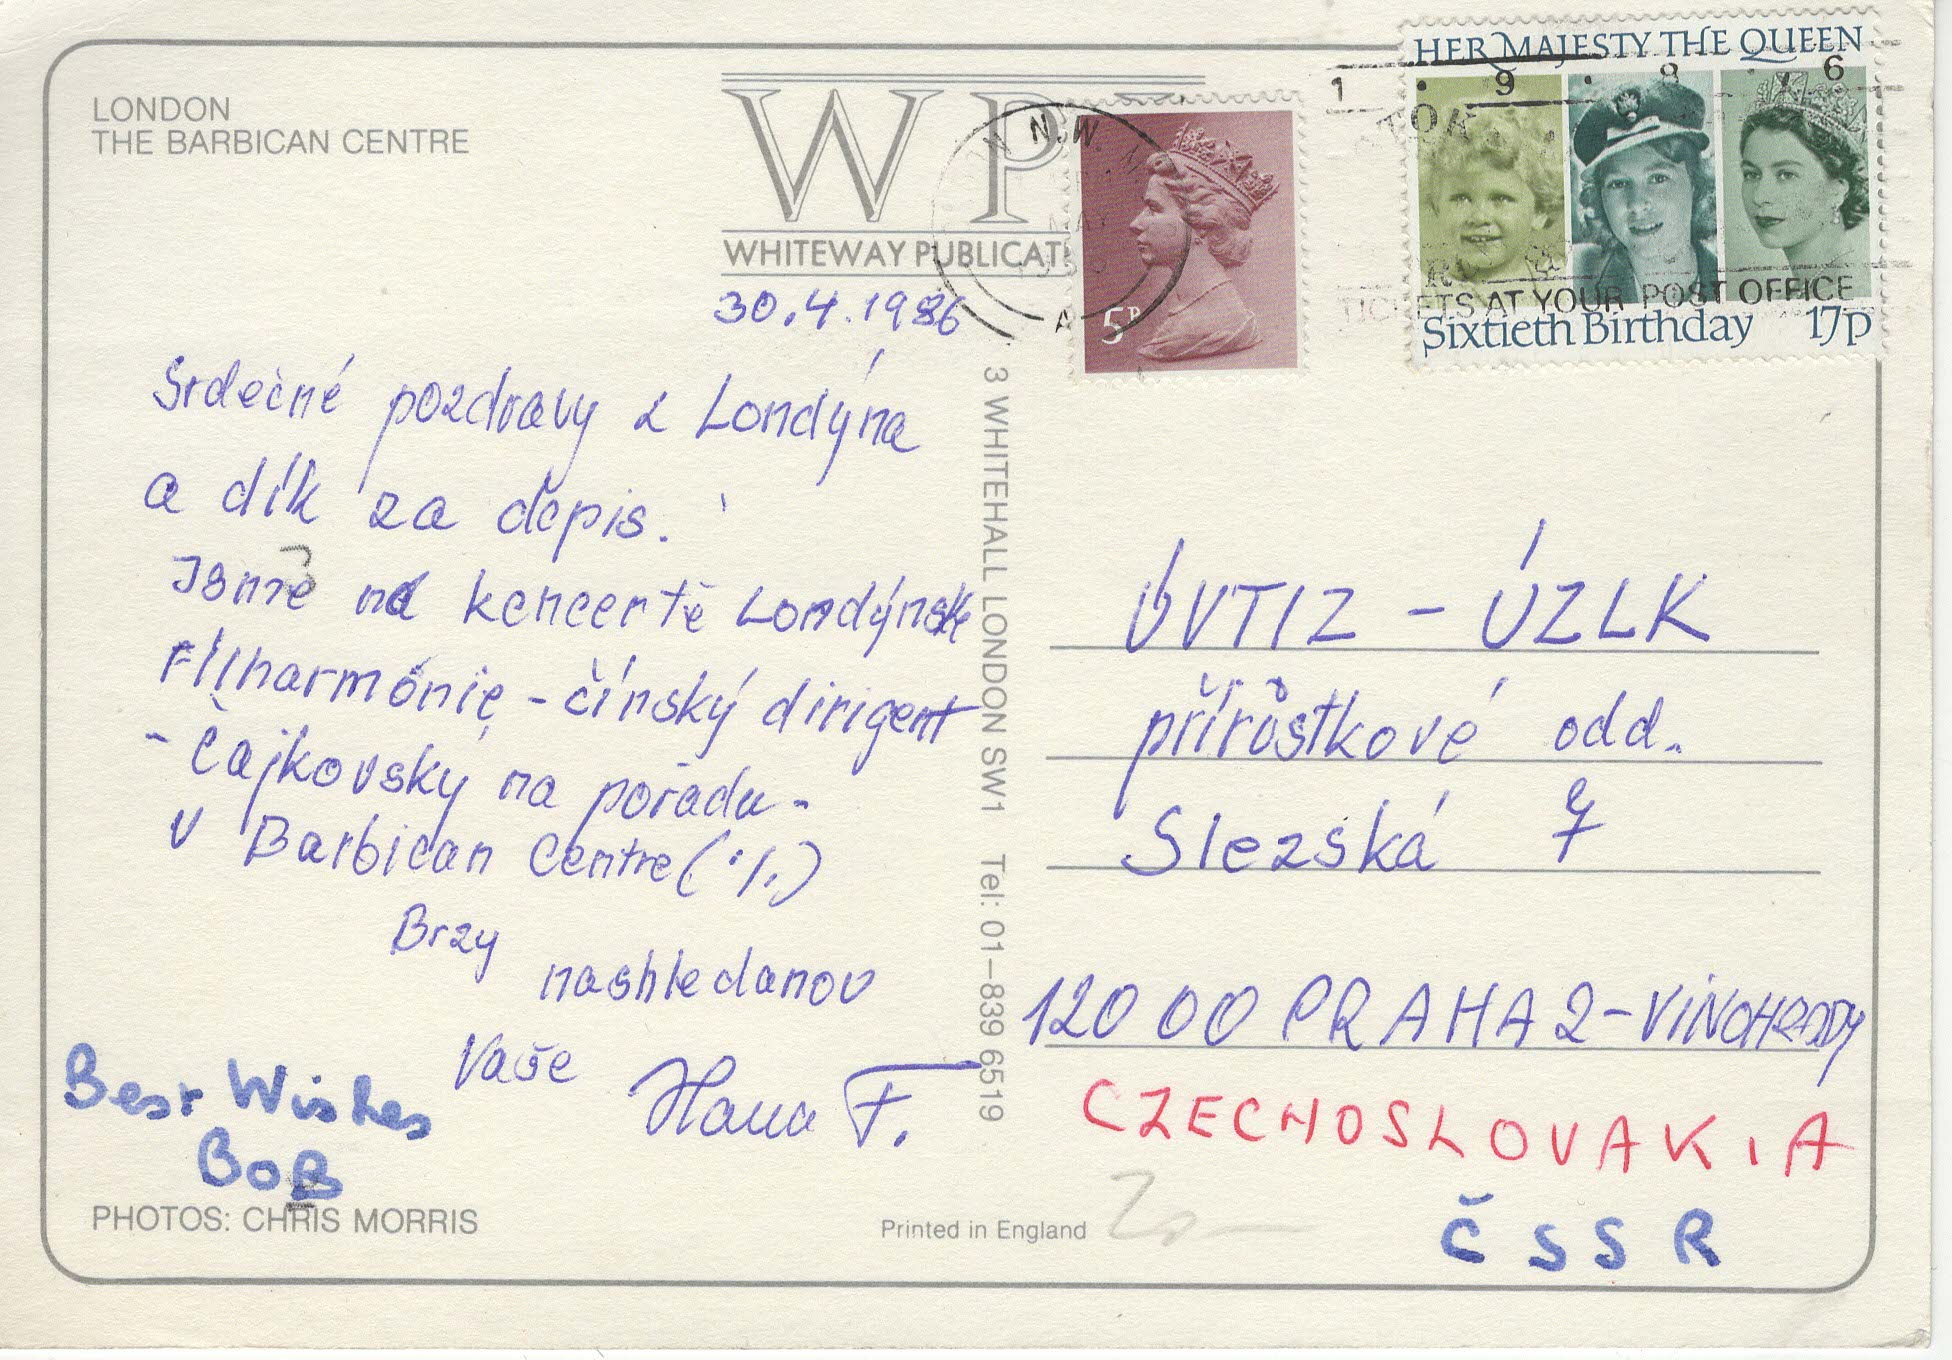 LONDON
THE BARBICAN CENTRE
WP
WHITEWAY PUBLICATI
30.4.1986
Srdečné pozdravy z Londýna
a dík za dopis.
Jsme na koncertě Londýnské
Filharmónie - čínský dirigent
- Čajkovský na pořadu -
v Barbican Centre (./.)
Brzy
nashledanou
Vaše
Hana F.
Best Wishes
BoB
PHOTOS: CHRIS MORRIS
Printed in England
3 WHITEHALL LONDON SW1 Tel: 01-839 6519
N.W.
A
5P
HER MAJESTY THE QUEEN
1 9 8 6
TICKETS AT YOUR POST OFFICE
Sixtieth Birthday 17p
ÚVTIZ - ÚZLK
přírůstkové odd.
Slezská 7
120 00 PRAHA 2-VINOHRADY
CZECHOSLOVAKIA
ČSSR